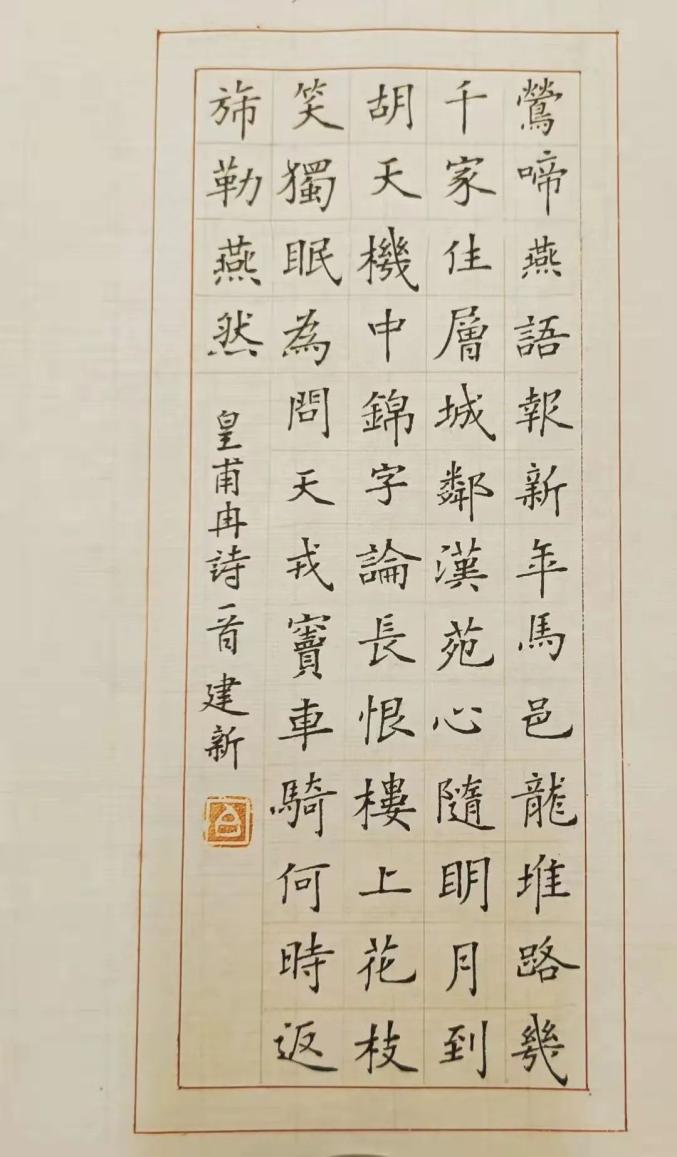 鶯啼燕語報新年馬邑龍堆路幾
千家住層城鄰漢苑心隨明月到
胡天機中錦字論長恨樓上花枝
笑獨眠為問天戎竇車騎何時返
旆勒燕然
皇甫冉詩一首建新